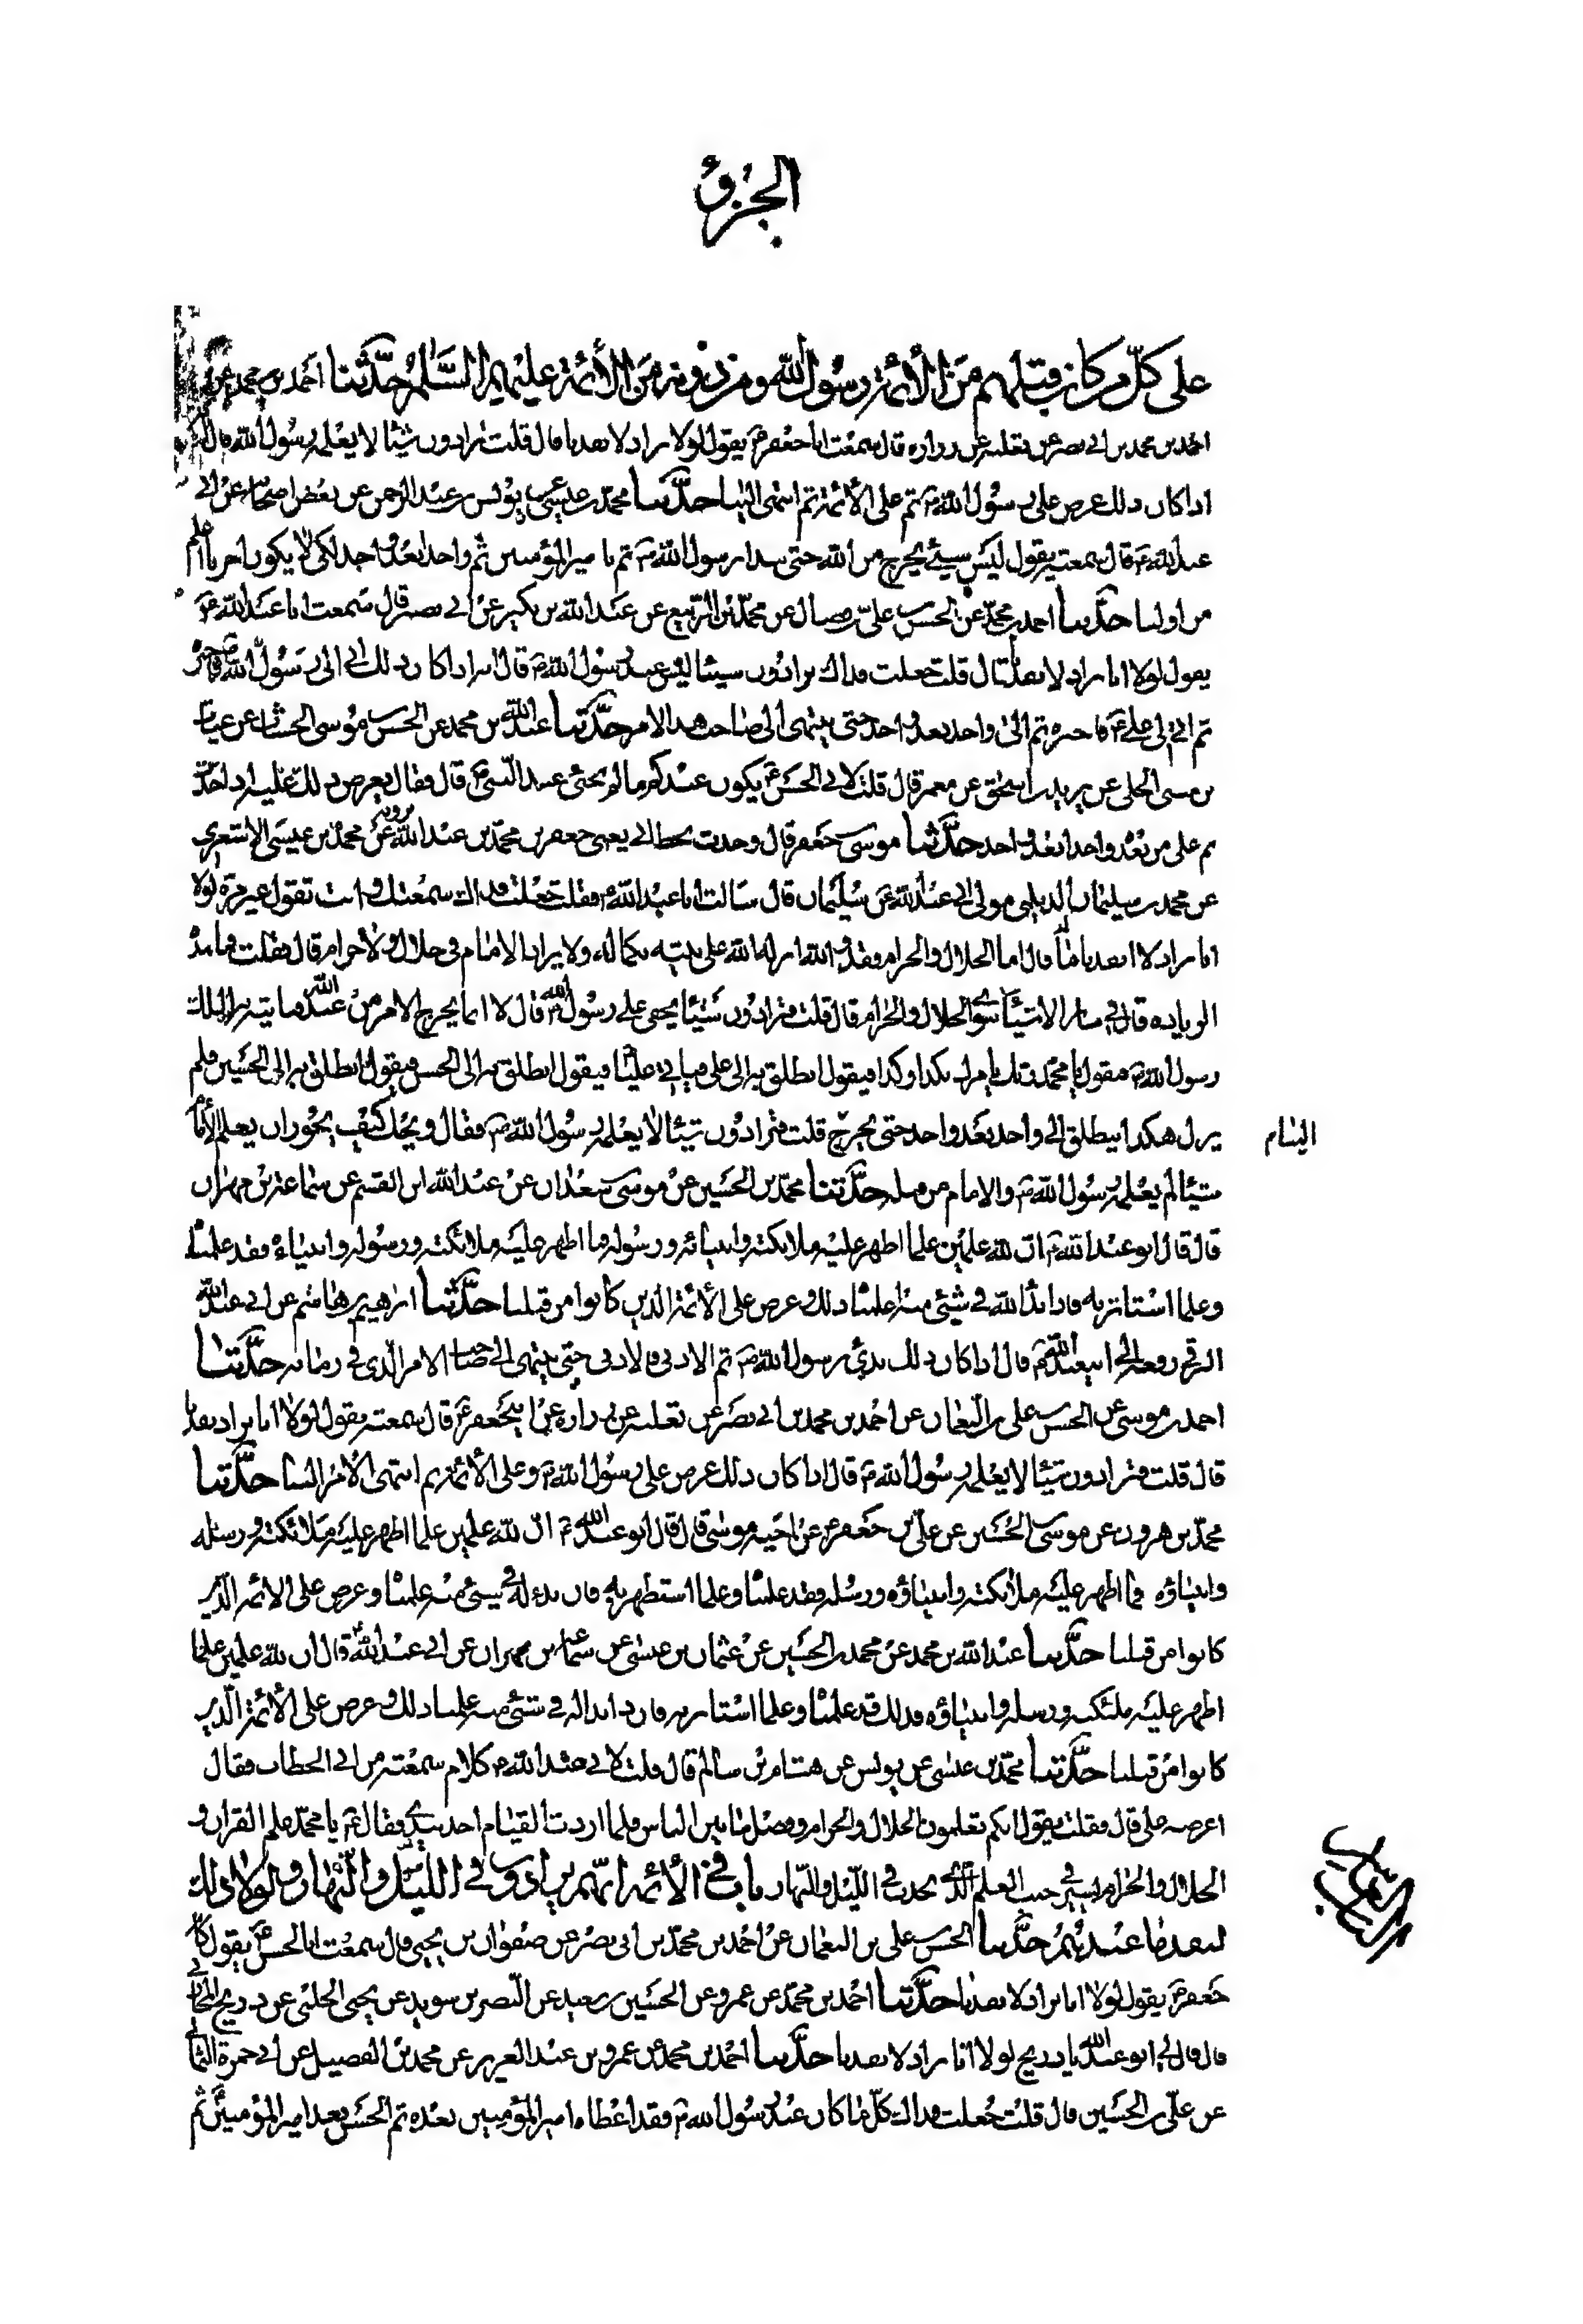 الجزؤ
على كل من كان قبلهم من الأئمة رسول الله ومن دونه من الأئمة عليهم السلام حدثنا احمد بن محمد عن
احمد بن محمد بن ابى نصر عن ثعلبه عن زراره قال سمعت ابا جعفر ع يقول لولا نزاد لانفدنا قال قلت تزادون شيئا لا يعلمه رسول الله قال
اذا كان ذلك عرض على رسول الله ص ثم على الأئمة ثم انتهى الينا حدثنا محمد بن عيسى عن يونس بن عبد الرحمن عن بعض اصحابه عن ابى
عبد الله ع قال سمعته يقول ليس شيئ يخرج من الله حتى يبدا برسول الله ص ثم بامير المؤمنين ثم واحدا بعد واحد لكى لا يكون اخرنا اعلم
من اولنا حدثنا احمد بن محمد عن الحسن بن على بن فضال عن محمد بن الربيع عن عبد الله بن بكير عن ابى بصير قال سمعت ابا عبد الله ع
يقول لولا انا نزاد لانفدنا قال قلت جعلت فداك تزادون شيئا ليس عند رسول الله ص قال انه اذا كان ذلك اتى الى رسول الله ص فاخبر
ثم اتى الى على ع فاخبره ثم الى واحد بعد واحد حتى ينتهى الى صاحب هذا الامر حدثنا عبد الله بن محمد عن الحسن بن موسى الخشاب عن
بن عيسى الحلبى عن يزيد بن اسحق عن معمر قال قلت لابى الحسن ع يكون عندكم ما لم يجئ عند النبى ص قال فقال يعرض ذلك عليه اذا حدث
ثم على من بعده واحدا بعد واحد حدثنا موسى بن جعفر قال وجدت بخط ابى يعنى جعفر بن محمد بن عبد الله يرويه عن محمد بن عيسى الاشعرى
عن محمد بن سليمان الديلمى مولى ابى عبد الله عن سليمان قال سالت ابا عبد الله ع فقلت جعلت فداك سمعتك وانت تقول غير مرة لولا
انا نزاد لانفدنا قال اما الحلال والحرام فقد والله انزله الله على نبيه بكماله ولا يزاد الامام فى حلال ولا حرام قال فقلت فما هذه
الزياده قال فى ساير الاشياء سوى الحلال والحرام قال قلت فتزادون شيئا يخفى على رسول الله ص قال لا انما يخرج الامر من عند الله فياتيه به الملك
رسول الله ص فيقول يا محمد ربك يامرك بكذا وكذا فيقول انطلق به الى على فياتى عليا فيقول انطلق به الى الحسن فيقول انطلق به الى الحسين فلم
يزل هكذا ينطلق الى واحد بعد واحد حتى يخرج قلت فتزادون شيئا لا يعلمه رسول الله ص فقال ويحك كيف يجوز ان يعلم الأمام
شيئا لم يعلمه رسول الله ص والامام من قبله حدثنا محمد بن الحسين عن موسى بن سعدان عن عبد الله ابن القسم عن سماعة بن مهران
قال قال ابو عبد الله ع ان لله علمين علما اظهر عليه ملائكته وانبيائه ورسوله فما اظهر عليه ملائكته ورسوله وانبياءه فقد علمناه
وعلما استاثر به فاذا بدأ لله فى شيئ منه اعلمنا ذلك وعرض على الأئمة الذين كانوا من قبلنا حدثنا ابرهيم بن هاشم عن ابى عبد الله
البرقى رفعه الى ابيعبد الله ع قال اذا كان ذلك بدئ برسول الله ص ثم الادنى فالادنى حتى ينتهى الى صاحب الامر الذى فى زمانه حدثنا
احمد بن موسى عن الحسن بن على بن النعمان عن احمد بن محمد بن ابى نصر عن ثعلبه عن زراره عن ابيجعفر ع قال سمعته يقول لولا انا نزاد نفدنا
قال قلت فتزادون شيئا لا يعلمه رسول الله ص قال اذا كان ذلك عرض على رسول الله ص وعلى الأئمة ثم انتهى الأمر الينا حدثنا
محمد بن هرون عن موسى بن الحسين عن على بن جعفر ع عن اخيه موسى قال قال ابو عبد الله ع ان لله علمين علما اظهر عليه ملائكته ورسله
وانبياؤه فما اظهر عليه ملائكته وانبياؤه ورسله فقد علمنا وعلما استظهر به فان بدء له فى شيئ منه علمنا وعرض على الائمه الذين
كانوا من قبلنا حدثنا عبد الله بن محمد عن محمد بن الحسين عن عثمان بن عيسى عن سماعه بن مهران عن ابى عبد الله ع قال ان لله علمين علما
اظهر عليه ملئكته ورسله وانبياؤه فذلك قد علمنا وعلما استاثر به فاذا بدا له فى شئ منه علمنا ذلك وعرض على الأئمة الذين
كانوا من قبلنا حدثنا محمد بن عيسى عن يونس عن هشام بن سالم قال قلت لابى عبد الله ع كلام سمعته من ابى الخطاب فقال
اعرضه على قال فقلت يقول انكم تعلمون الحلال والحرام وفصل ما بين الناس فلما اردت القيام اخذ بيدى فقال ع يا محمد علم القران و
الحلال والحرام يسير فى جنب العلم الذى يحدث فى الليل والنهار باب فى الأئمة انهم يزادون فى الليل والنهار ولولا ذلك
لنفد ما عندهم حدثنا الحسن بن على بن النعمان عن احمد بن محمد بن ابى نصر عن صفوان بن يحيى قال سمعت ابا الحسن ع يقول كان
جعفر ع يقول لولا انا نزاد لانفدنا حدثنا احمد بن محمد عن عمرو عن الحسين بن سعيد عن النضر بن سويد عن يحيى الحلبى عن ذريح المحاربى
قال قال لى ابو عبد الله يا ذريح لولا انا نزاد لانفدنا حدثنا احمد بن محمد عن عمرو بن عبد العزيز عن محمد بن الفضيل عن ابى حمزة الثمالى
عن على بن الحسين قال قلت جعلت فداك كل ما كان عند رسول الله ص فقد اعطاه امير المؤمنين بعده ثم الحسن بعد امير المؤمنين ثم